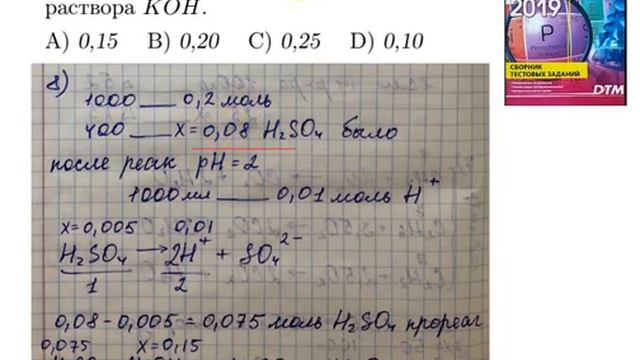 раствора KOH.
A) 0,15 B) 0,20 C) 0,25 D) 0,10
2019
P
СБОРНИК
ТЕСТОВЫХ ЗАДАНИЙ
DTM
8)
1000 — 0,2 моль
400 — x = 0,08 H₂SO₄ было
после реак pH = 2
1000 мл — 0,01 моль H⁺
x = 0,005 0,01
H₂SO₄ → 2H⁺ + SO₄²⁻
1 2
0,08 - 0,005 = 0,075 моль H₂SO₄ прореаг
0,075 x = 0,15